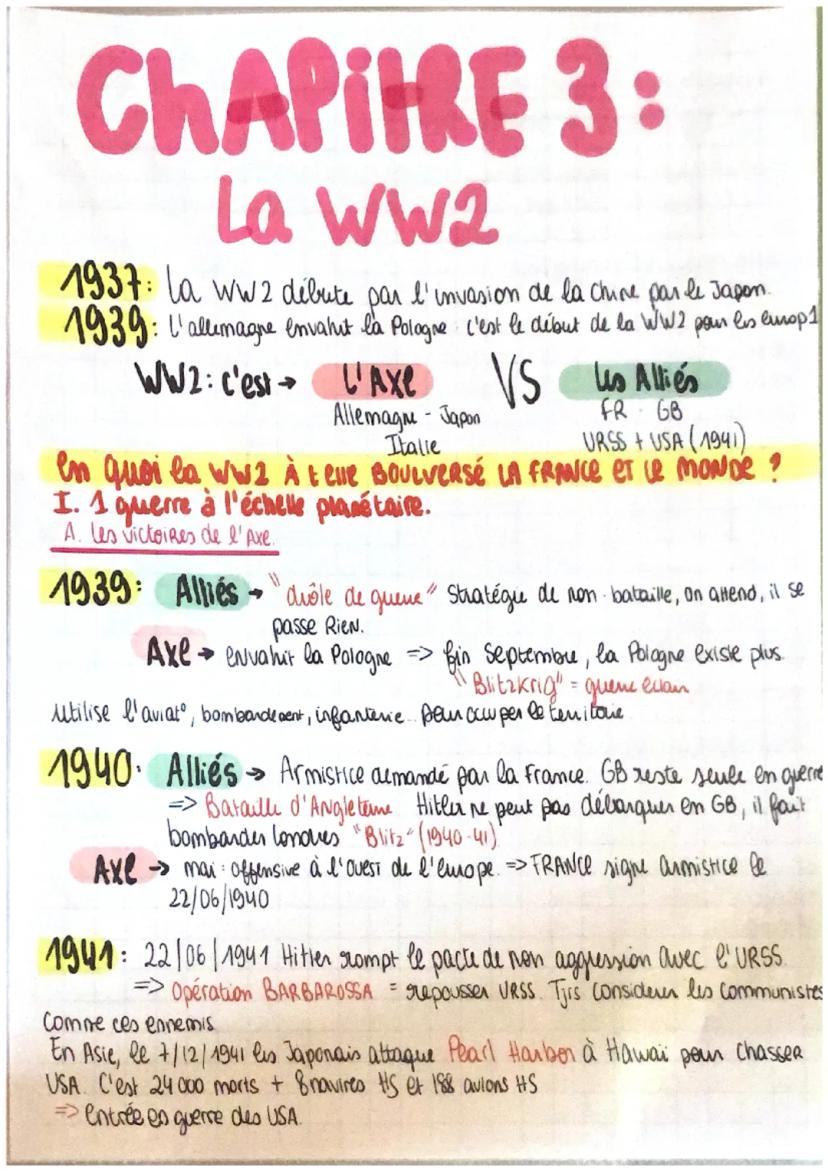 CHAPITRE 3 :
La WW2
1937: La WW2 débute par l'invasion de la Chine par le Japon.
1939: L'allemagne envahit la Pologne : c'est le début de la WW2 pour les europ1
WW2: c'est → L'Axe VS Les Alliés
Allemagne - Japon FR - GB
Italie URSS + USA (1941)
En quoi la WW2 À t elle BOULVERSÉ LA FRANCE ET LE MONDE ?
I. 1 guerre à l'échelle planétaire.
A. Les victoires de l'Axe.
1939: Alliés → "drôle de guerre" Stratégie de non-bataille, on attend, il se
passe Rien.
Axe → envahit la Pologne => fin Septembre, la Pologne existe plus.
"Blitzkrig" = guerre éclair
Utilise l'aviat°, bombardement, infanterie.. pour occuper le territoire.
1940: Alliés → Armistice demandé par la France. GB reste seule en guerre
=> Bataille d'Angleterre Hitler ne peut pas débarquer en GB, il fait
bombarder Londres "Blitz" (1940-41).
Axe → mai : offensive à l'OUEST de l'europe. => FRANCE signe armistice le
22/06/1940
1941: 22/06/1941 Hitler rompt le pacte de non aggression avec l'URSS.
=> Opération BARBAROSSA = repousser URSS. Tjrs considerer les communistes
Comme ces ennemis
En Asie, le 7/12/1941 les Japonais attaque Pearl Harbor à Hawaï pour chasser
USA. C'est 24 000 morts + 8 navires HS et 188 avions HS
=> Entrée en guerre des USA.